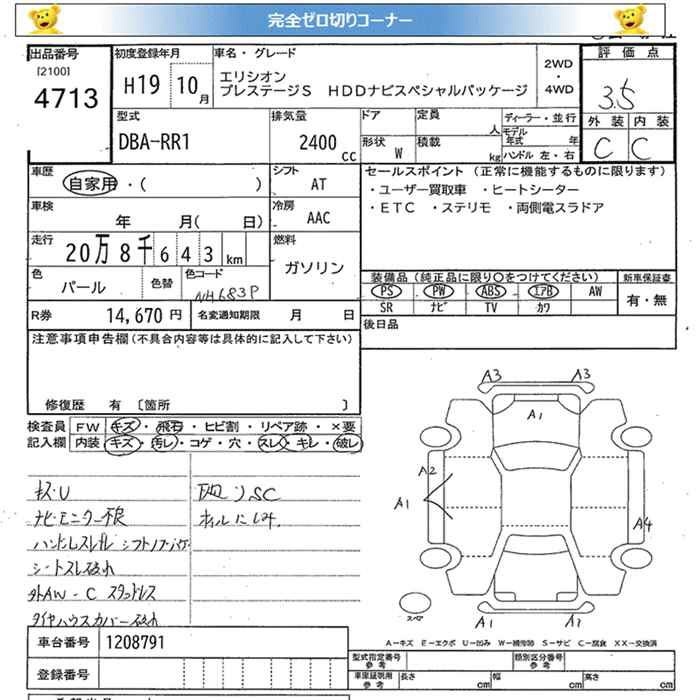 完全ゼロ切りコーナー
出品番号
[2100]
4713
初度登録年月
H19 10月
車名・グレード
エリシオン
プレステージS HDDナビスペシャルパッケージ
2WD
・
4WD
評価点
3.5
外装 内装
C C
型式
DBA-RR1
排気量
2400 cc
ドア
定員
人
形状
W
積載
kg
ディーラー・並行
モデル年式 年
ハンドル 左・右
車歴
自家用・( )
シフト
AT
セールスポイント (正常に機能するものに限ります)
・ユーザー買取車 ・ヒートシーター
・ETC ・ステリモ ・両側電スラドア
車検
年 月( 日)
冷房
AAC
走行
20万8千643km
燃料
ガソリン
色
パール
色替
色コード
NH683P
装備品(純正品に限り〇をつけてください)
PS PW ABS エアB AW
SR ナビ TV カワ
新車保証書
有・無
R券
14,670円
名変通知期限 月 日
後日品
注意事項申告欄(不具合内容等は具体的に記入して下さい)
修復歴 有 〔箇所 〕
検査員 FW キズ・飛石・ヒビ割・リペア跡・×要
記入欄 内装 キズ・汚レ・コゲ・穴・スレ・キレ・破レ
キズ・U
ナビモニター不良
ハンドルスレ
シートスレ破れ
外AW-C スタッドレス
タイヤハウスカバー破れ
下回りSC
オイルにじみ
A3 A3
A1
A2
A1
A4
A1
スペア
A-キズ E-エクボ U-凹み W-補修跡 S-サビ C-腐食 XX-交換済
車台番号
1208791
登録番号
型式指定番号
参考
類別区分番号
参考
車庫証明用
参考
長さ cm
幅 cm
高さ cm